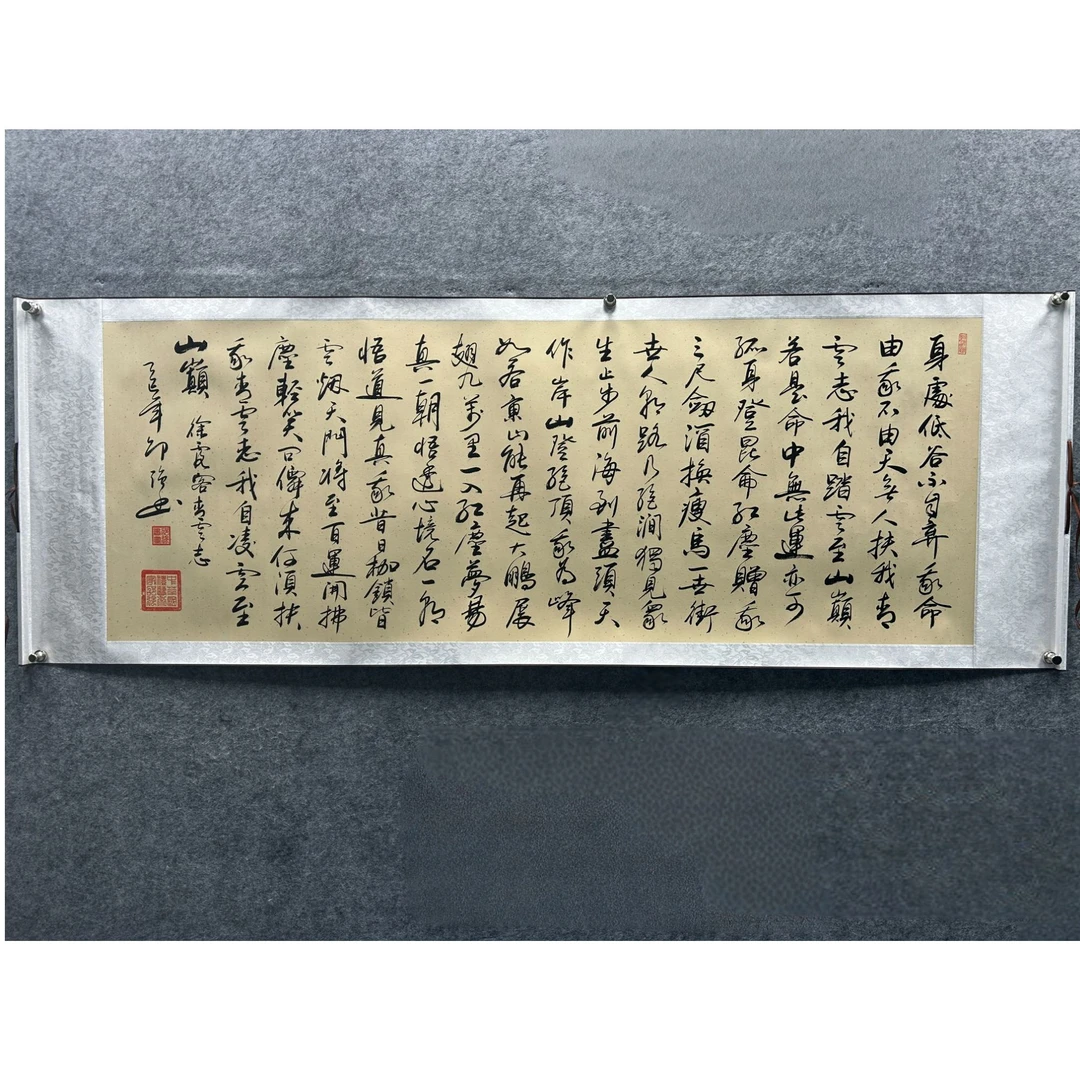 身處低谷不自棄我命
由我不由天無人扶我青
雲志我自踏雲至山巔
若是命中無此運亦可
孤身登昆侖紅塵贈我
三尺劍酒換瘦馬一世衝
世人朝路乃絕澗獨見眾
生止步前海到盡頭天
作岸山登絕頂我為峰
如若東山能再起大鵬展
翅九萬里一入紅塵夢易
真一朝悟透心境名一朝
悟道見真我昔日枷鎖皆
雲煙天門將至百運開拂
塵輕笑問仙來何須扶
我青雲志我自凌雲至
山巔
徐霞客青雲志
書